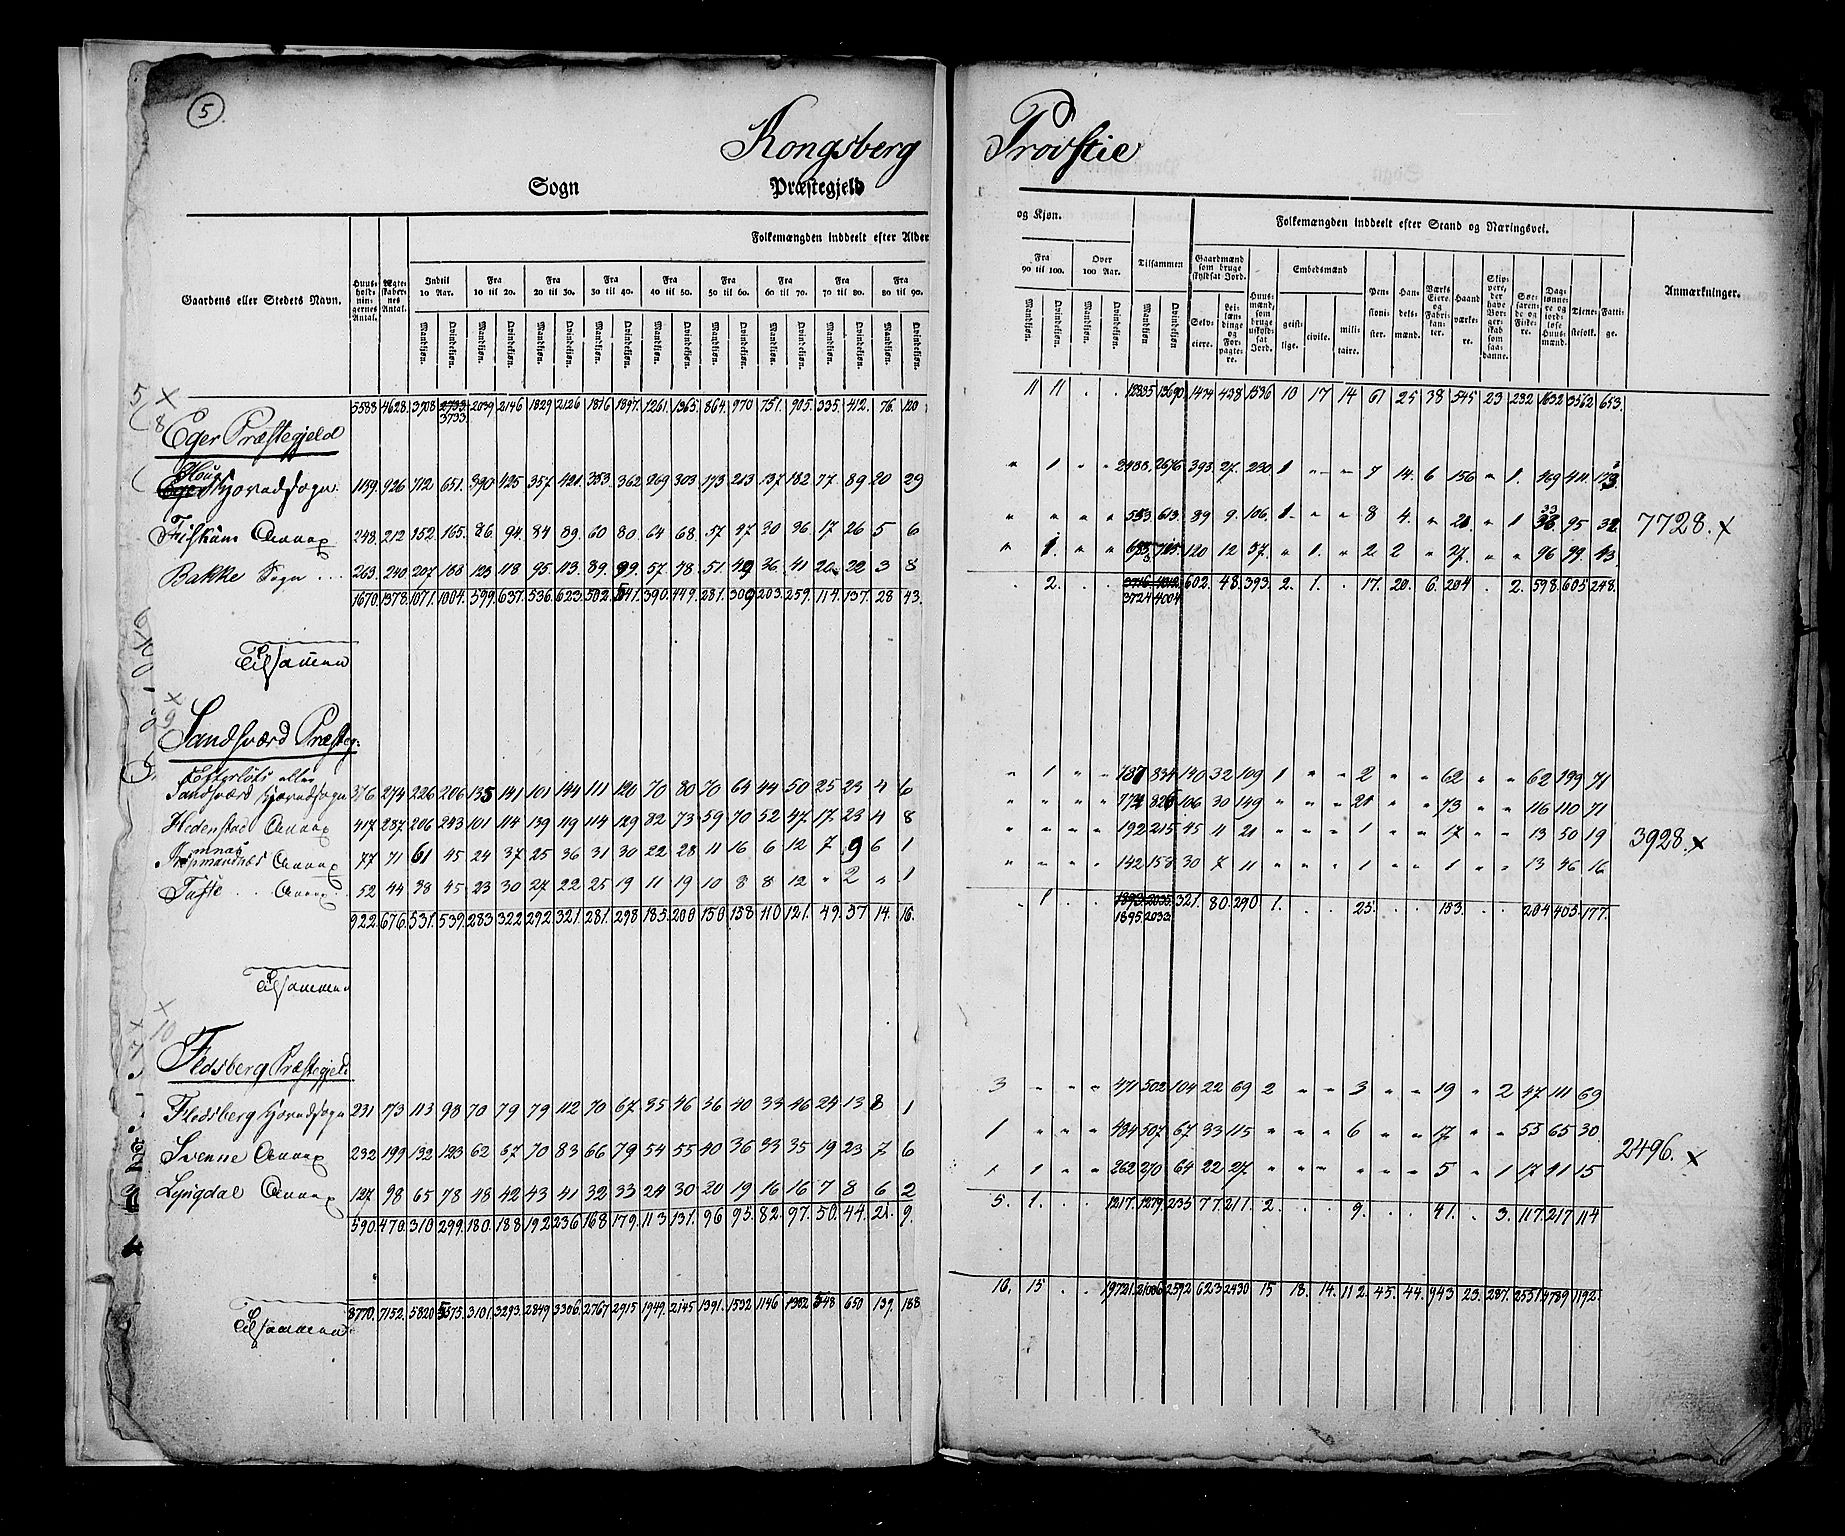 5
Kongsberg Provstie
Sogn Præstegjeld
Folkemængden inddeelt efter Alder og Kjøn. Tilsammen Folkemængden inddeelt efter Stand og Næringsvei.
Gaardens eller Stedets Navn. Huus-hold-nin-gernes Antal. Ægte-skaber-nes Antal. Indtil 10 Aar. Fra 10 til 20. Fra 20 til 30. Fra 30 til 40. Fra 40 til 50. Fra 50 til 60. Fra 60 til 70. Fra 70 til 80. Fra 80 til 90. Fra 90 til 100. Over 100 Aar.
Mandkjøn. Qvindekjøn. Mandkjøn. Qvindekjøn. Mandkjøn. Qvindekjøn. Mandkjøn. Qvindekjøn. Mandkjøn. Qvindekjøn. Mandkjøn. Qvindekjøn. Mandkjøn. Qvindekjøn. Mandkjøn. Qvindekjøn. Mandkjøn. Qvindekjøn. Mandkjøn. Qvindekjøn. Mandkjøn. Qvindekjøn. Mandkjøn Qvindekjøn
Gaardmænd som bruge skyldsat Jord. Selv-eiere. Lei-læn-dinge og For-pagte-re. Huus-mænd, som bruge uskyld-sat Jord. Embedsmænd geist-lige. civile. mili-taire. Pen-sioni-ster. Han-dels-mænd. Værks Eiere, og Fabri-kan-ter. Haand værke-re. Slip-pere, der have Bor-ger-skab som saa-danne. Søe-faren-de og Fiske-re. Dag-lønne-re og jord-løse Huus-mænd. Tjene-stefolk. Fatti-ge. Anmærkninger.
5583 4628. 3908 2733 2039 2146 1829 2126 1816 1897. 1261. 1365. 864. 970 751. 905. 335. 412. 76. 120 11 11 . . 12835 13690 1474 438 1536 10 17 14 61 25 38 545 23 232 1632 3562 653.
3733.
Eger Præstegjeld
Houg
Hovedsogn. 1159. 926 712 651. 390 425 357 421 353 362 269 303 173 213 137 182 77. 89 20 29 " 1 " " 2488. 2676 393 27. 230 1 " " 7 14. 6 156 " 1. 469 411. 173
Fiskum Annex 248. 212 152. 165. 86. 94. 84 89. 60 80. 64 68. 57 47 30 36. 17 26 5 6 " " " " 553 613. 89 9. 106. 1. " " 8 4. " 21 " 1 33 95 32 7728. x
Bakke Sogn ... 263. 240. 207 188 123 118 95. 113. 89. 99. 57 78. 51. 49 36. 41 20. 22 3 8 " 1. " " 683 715 120 12 57. " 1. " 2 2 " 27. " " 96 99 43
1670. 1378. 1071. 1004. 599. 637. 536. 623. 502. 541. 390. 449. 281. 309 203. 259. 114. 137. 28 43. . 2. . . 3716 4012 602. 48. 393. 2. 1. . 17. 20. 6. 204 . 2. 598. 605 248.
3724 4004
Tilsamen
Sandsværd Præsteg:
Efterløts eller
Sandsværd Hovedsogn 376 274 226 206 135 141 101 144 111 120 70 80 70 64 44 50 25 23 4 6 " 1 " " 787 834 140 32 109 1 " " 2 " " 62 " " 62 139 71
Hedenstad Annex 417 287 206 243 101 114 139 119 114 129 82 73 59 70 52 47 17 23 4 8 " " " " 774 826 106 30 149 " " " 21 " " 73 " " 116 110 71
Annex 77 71 61 45 24 37 25 36 31 30 22 28 11 16 6 12 7 9 6 1 " " " " 192 215 45 11 21 " " " 1 " " 17 " " 13 50 19 3928. x
Tufte .. Annex 52 44 38 45 23 30 27 22 25 19 11 19 10 8 8 12 " 2 " 1 " " " " 142 158 30 7 11 " " " 1 " " 1 " " 13 46 16
922. 676. 531. 539. 283 322 292 321. 281. 298 185. 200 150 158 110 121. 49. 57 14. 16. . 1 . . 1893. 2035. 321. 80. 290 1. . . 25. . . 153. . . 204 405. 177.
1895. 2033
Tilsammen
Flesberg Præstegjeld
Flesberg Hovedsogn 231 173 113 98 70 79 79 112 70 67 35 46 36 40 33 46 24 13 8 1 3 " " " 471 502 104 22 69 2 " " 3 " " 19 " 2 47 111 69
Svenne Annex 232 199 132 123 62 67 70 83 66 79 54 55 40 36 33 35 19 23 7 6 1 " " " 484 507 67 33 115 " " " 6 " " 17 " " 53 65 30 2496. x
Lyngdal Annex 127 98 65 78 48 42 43 41 32 33 24 30 20 19 16 16 7 8 6 2 1 1 " " 262 270 64 22 27 " " " " " " 5 " 1 17 41 15
590. 470. 310 299. 180. 188. 192. 236. 168. 179. 113 131. 96 95. 82. 97. 50. 44. 21. 9. 5. 1. . . 1217. 1279. 235. 77. 211. 2. . . 9. . . 41. . 3. 117. 217 114
Tilsammen 8770. 7152. 5820 5575. 3101. 3293. 2849 3306. 2767. 2915 1949. 2145 1391. 1532 1146 1382 548 650 139. 188 16. 15 . . 19721. 21006 2592 623 2430 15 18. 14. 112. 45. 44. 943 23. 287. 2551 4789 1192.